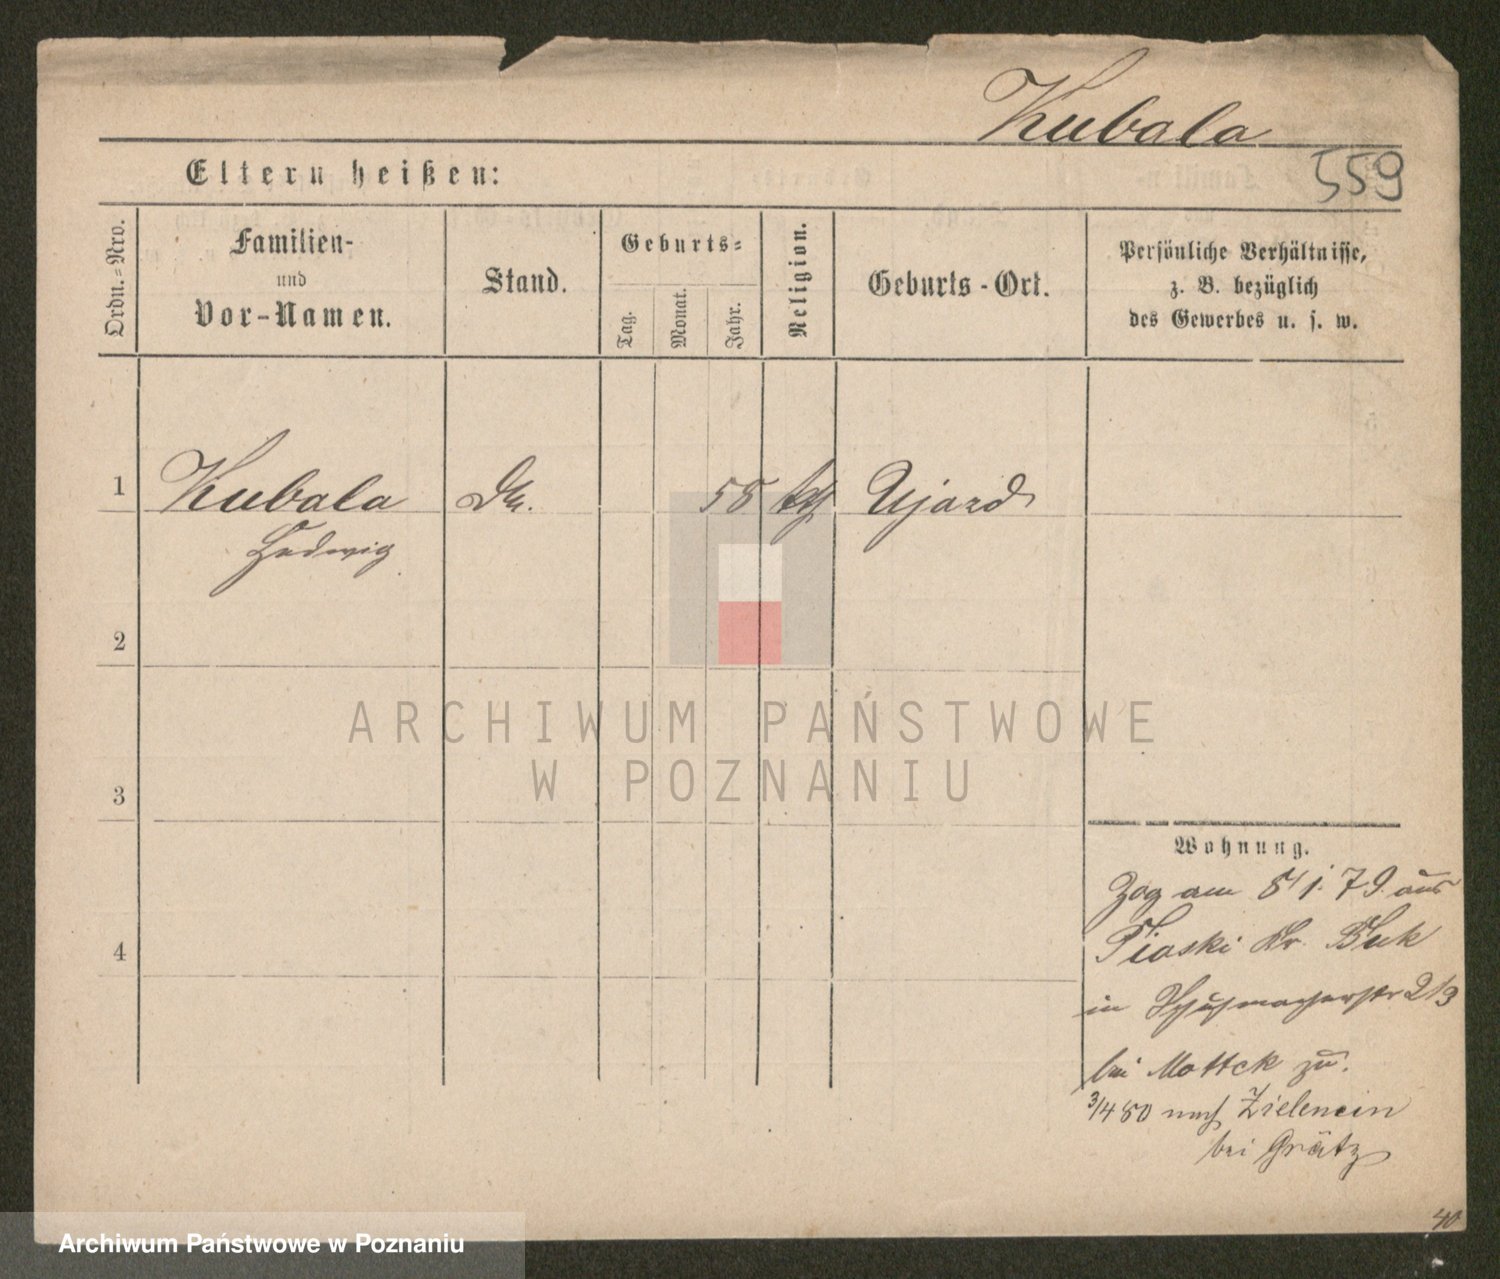 Kubala
559
Eltern heißen:
Ordn.=Nro.
Familien-
und
Vor-Namen.
Stand.
Geburts=
Tag.
Monat.
Jahr.
Religion.
Geburts-Ort.
Persönliche Verhältnisse,
z. B. bezüglich
des Gewerbes u. s. w.
1 Kubala 58 kth Ujazd
Hedwig
2
3
4
ARCHIWUM PAŃSTWOWE
W POZNANIU
Wohnung.
Zog am 8/1. 79. aus
Piaski Kr. Buk
in Schuhmacherstr
bei Mottek zu.
3/4 80 nach
bei Grätz
40
Archiwum Państwowe w Poznaniu